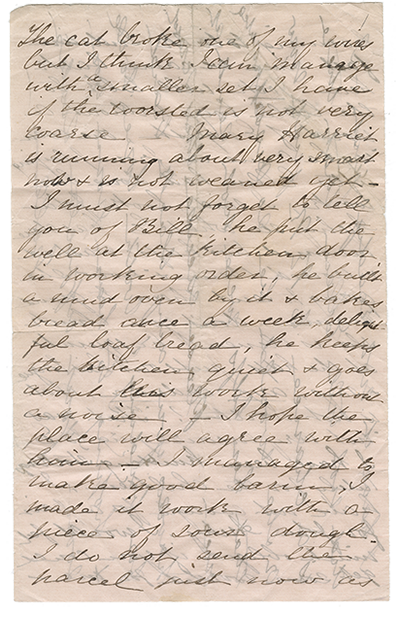 The cat broke one of my wires
but I think I can manage
with a smaller set I have
if the worsted is not very
coarse Mary Harriet
is running about very smart
now & is not weaned yet -
I must not forget to tell
you of Bill he put the
well at the kitchen door
in working order, he built
a mud oven by it & bakes
bread once a week, delight
ful loaf bread, he keeps
the kitchen quiet & goes
about his work without
a noise - I hope the
place will agree with
him - I managed to
make good barm, I
made it work with a
piece of sour dough -
I do not send the
parcel just now as